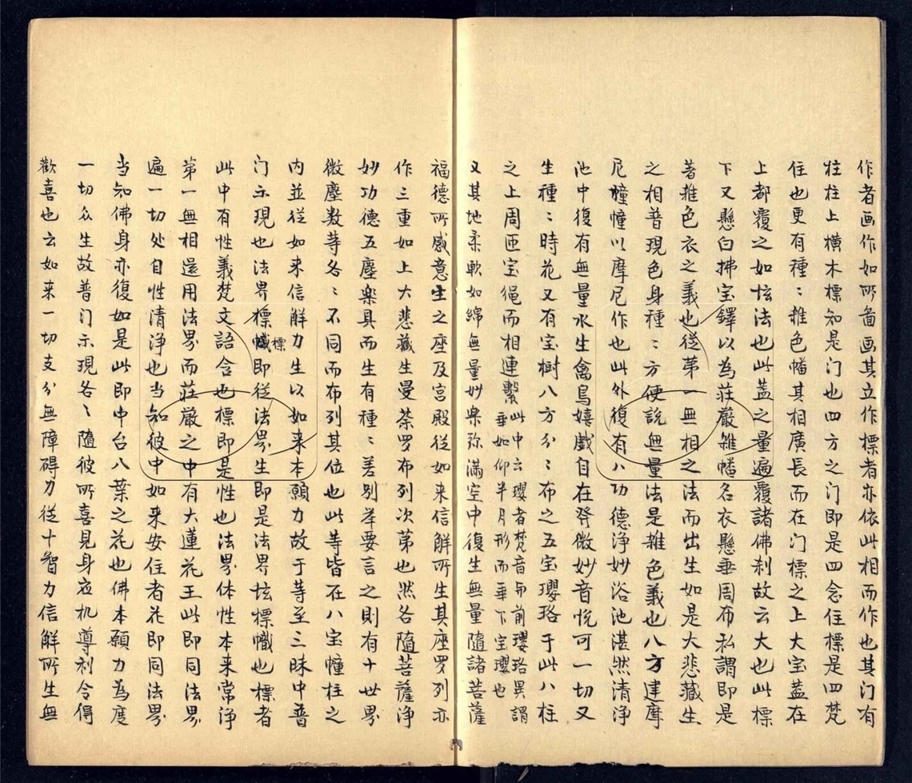 作者画作如所畫画其立作標者亦依此相而作也其门有
柱柱上横木標知是门也四方之门即是四念住標是四梵
住也更有種〻雜色幡其相廣長而在门標之上大宝盖在
上都覆之如㤥法也此盖之量遍覆諸佛刹故云大也此標
下又懸白拂宝鐸以為莊嚴雜幡名衣懸垂周布私謂即是
著雜色衣之義也従苐一無相之法而出生如是大悲藏生
之相普現色身種〻方便說無量法是雜色義也八方建摩
尼幢幢以摩尼作也此外復有八功德浄妙浴池湛然清浄
池中復有無量水生禽鳥嬉戲自在發微妙音悅可一切又
生種〻時花又有宝樹八方分〻布之五宝瓔珞于此八柱
之上周匝宝繩而相連繫此中云瓔者梵音与前瓔珞異謂
垂如仰半月形而垂下宝瓔也
又其地柔軟如綿無量妙樂弥滿空中復生無量隨諸菩薩
福德所感意生之座及宮殿従如来信解所生其座罗列亦
作三重如上大悲藏生曼荼罗布列次第也然各隨菩薩浄
妙功德五塵樂具而生有種〻差别举要言之則有十世界
微塵数等各〻不同而布列其位也此等皆在八宝幢柱之
内並従如来信解力生以如来本願力故于等至三昧中普
门示現也法界標幟標即従法界生即是法界㤥標幟也標者
此中有性義梵文語含也標即是性也法界体性本来常浄
第一無相還用法界而莊嚴之中有大蓮花王此即同法界
遍一切处自性清浄也当知彼中如来安住者花即同法界
当知佛身亦復如是此即中台八葉之花也佛本願力為度
一切众生故普门示現各〻隨彼所喜見身应机導利令得
歡喜也云如来一切支分無障碍力従十智力信解所生無